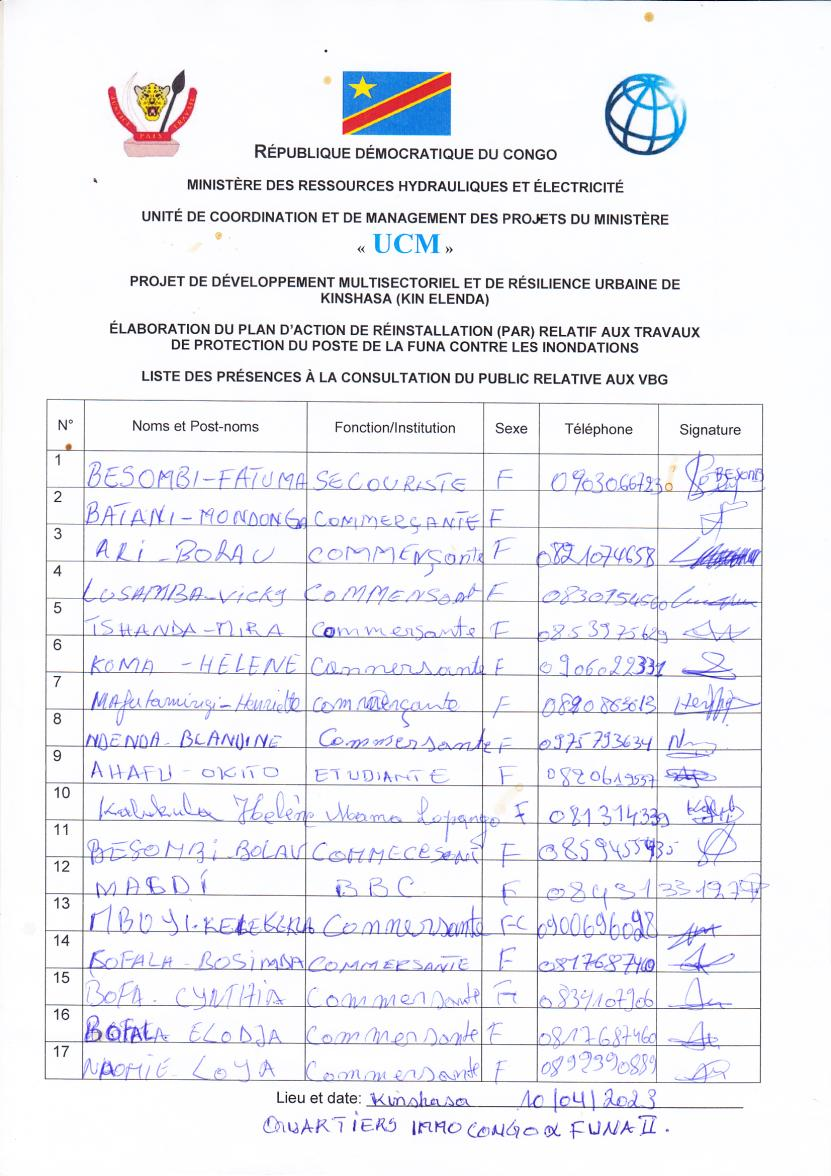 JUSTICE PAIX TRAVAIL
RÉPUBLIQUE DÉMOCRATIQUE DU CONGO
MINISTÈRE DES RESSOURCES HYDRAULIQUES ET ÉLECTRICITÉ
UNITÉ DE COORDINATION ET DE MANAGEMENT DES PROJETS DU MINISTÈRE
« UCM »
PROJET DE DÉVELOPPEMENT MULTISECTORIEL ET DE RÉSILIENCE URBAINE DE
KINSHASA (KIN ELENDA)
ÉLABORATION DU PLAN D'ACTION DE RÉINSTALLATION (PAR) RELATIF AUX TRAVAUX
DE PROTECTION DU POSTE DE LA FUNA CONTRE LES INONDATIONS
LISTE DES PRÉSENCES À LA CONSULTATION DU PUBLIC RELATIVE AUX VBG
N° Noms et Post-noms Fonction/Institution Sexe Téléphone Signature
1 BESOMBI-FATUMA SECOURISTE F 09030667230
2 BATANI-MONDONGA COMMERÇANTE F
3 ARI-BOLAU COMMENÇante F 0821074658
4 LUSAMBA-Vicky COMMENSant F 0830754560
5 TSHANDA-MIRA Commersante F 0853975629
6 KOMA - HELENE Commersante F 0906022331
7 Mafutamingi-Henriette Commerçante F 0820863613
8 NDENDA-BLANDINE Commersante F 0975793634
9 AHAFU-OKITO ETUDIANTE F 0820619557
10 Kabukula Hélène Mama Lopango F 081314339
11 BESOMBI-BOLAU F
12 MAGDI BBC F
13 MBUYI-KELEKELA Commersante FC 0900696028
14 BOFALA-BOSIMBA COMMERSANTE F 0817687460
15 BOFA. CYNTHIA Commersante F 0834107906
16 BOFALA ELODJA Commersante F 0817687460
17 NAOMIE-LOYA Commersante F 0892390889
Lieu et date: Kinshasa 10/04/2023
QUARTIERS IMMOCONGO & FUNA II.